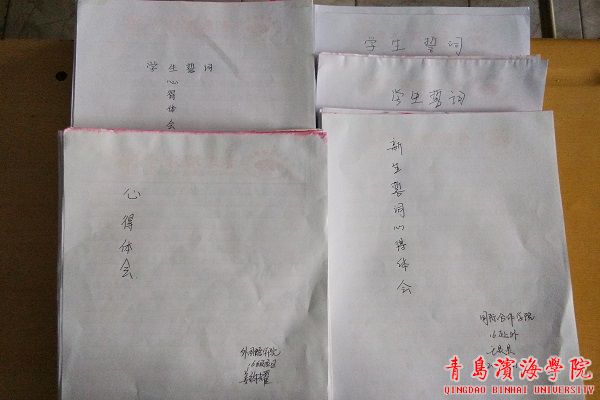 学生誓词
心得体会
学生誓词
学生誓词
心得体会
新生誓词心得体会
外国语学院
国际合作学院
青島濱海學院
QINGDAO BINHAI UNIVERSITY